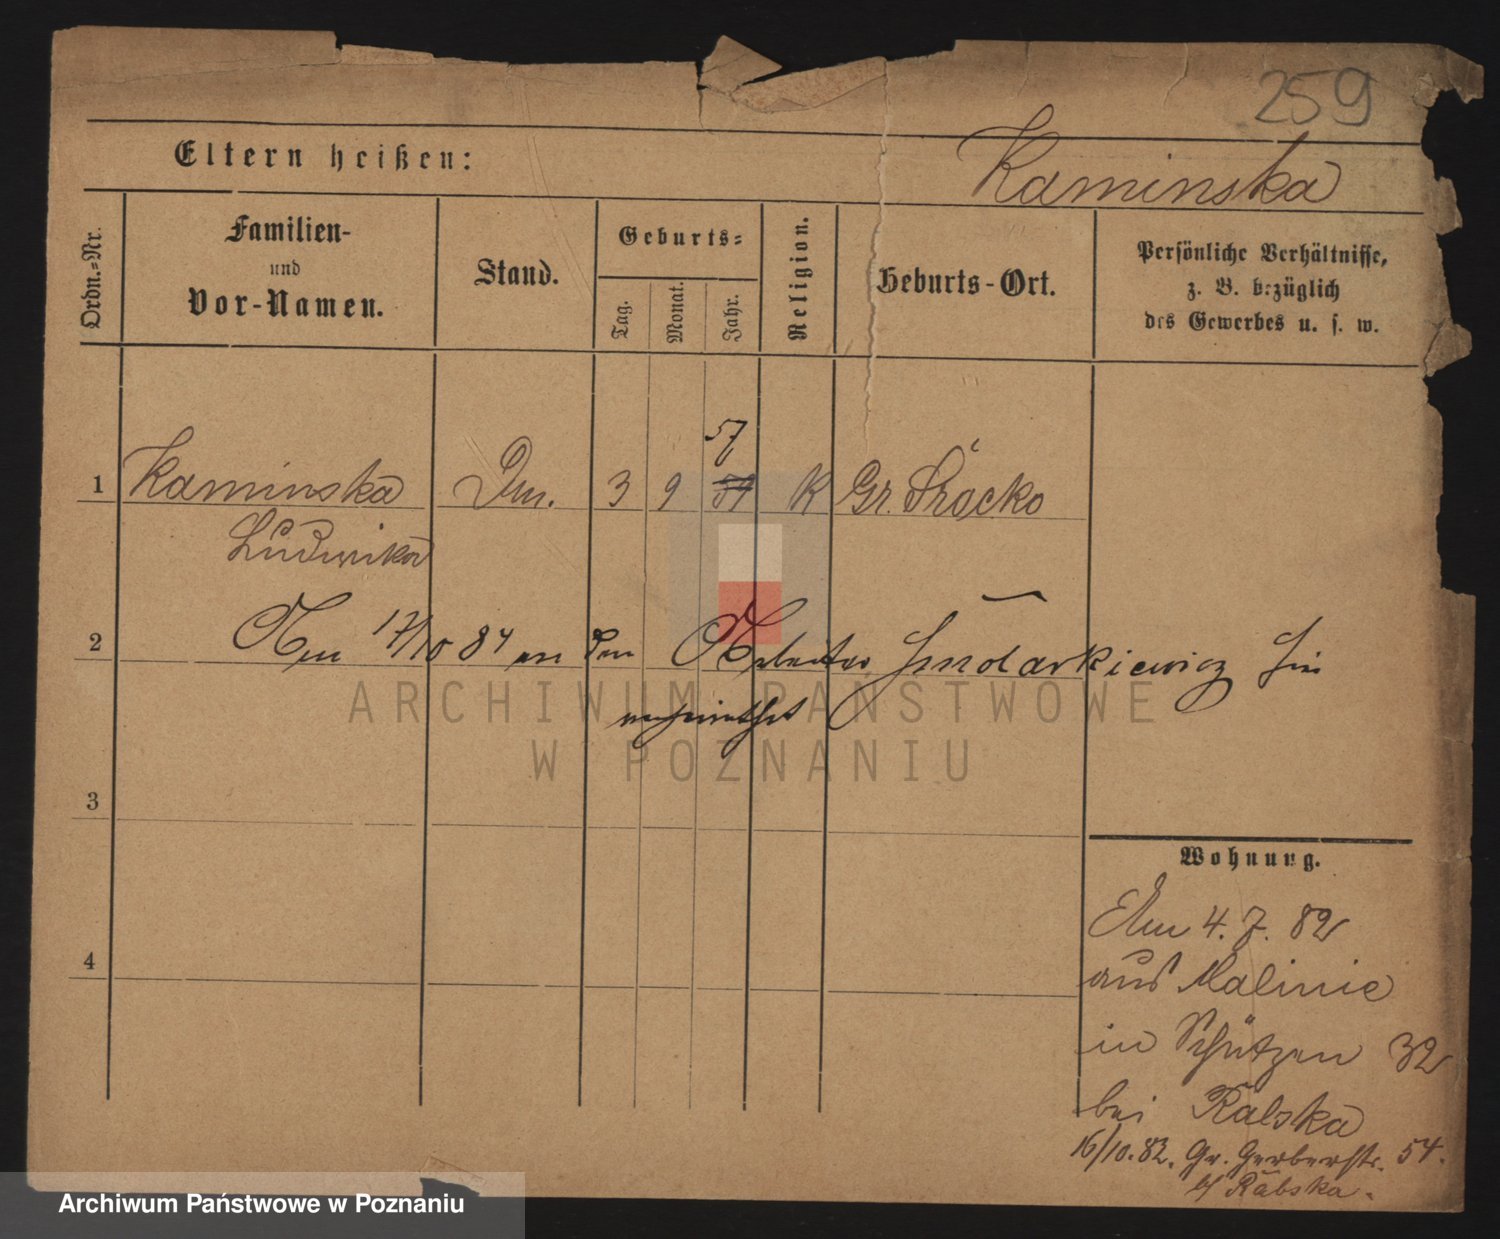 259
Eltern heißen:
Kaminska
Ordn.-Nr.
Familien-
und
Vor-Namen.
Stand.
Geburts-
Tag.
Monat.
Jahr.
Religion.
Geburts-Ort.
Persönliche Verhältnisse,
z. B. bezüglich
des Gewerbes u. s. w.
57
1 Kaminska 3 9 K Gr.
Ludwika
2 Am 17/10 84 an den Arbeiter Smolarkiewicz hier
verheirathet
ARCHIWUM PAŃSTWOWE
W POZNANIU
3
Wohnung.
4
Am 4. 7. 82
aus Malinie
in Schützen 32
bei Ralska
16/10.82. Gr. Gerberstr. 54.
b/ Rabska.
Archiwum Państwowe w Poznaniu